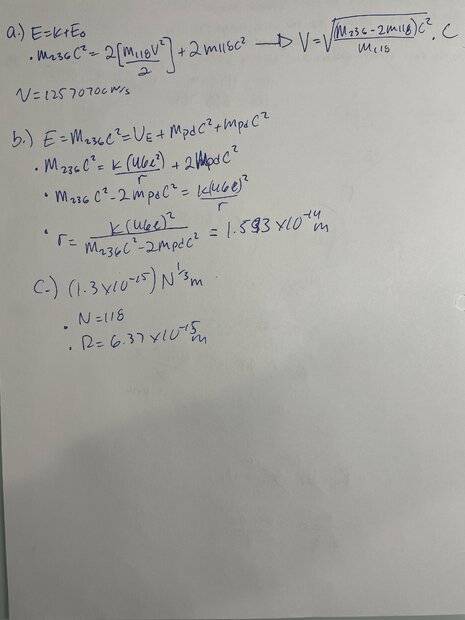 a.) E=K+E₀
• m₂₃₆C² = 2[m₁₁₈V²/2] + 2m₁₁₈C² → V=√((m₂₃₆-2m₁₁₈)C²/m₁₁₈) . C
V=12570700 m/s
b.) E=m₂₃₆C²=U_E+mpdC²+mpdC²
• m₂₃₆C²=K(46e²)/r + 2mpdC²
• m₂₃₆C²-2mpdC²=K(46e)²/r
• r= K(46e)²/m₂₃₆C²-2mpdC² = 1.593×10⁻¹⁴m
C.) (1.3×10⁻¹⁵)N^1/3m
• N=118
• R=6.37×10⁻¹⁵m